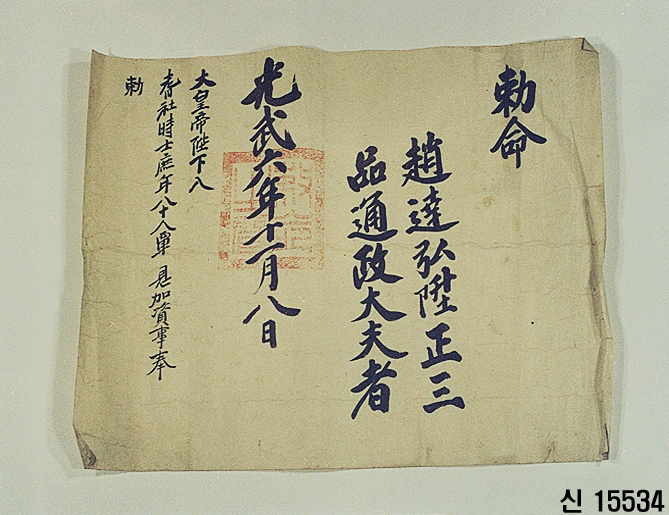 勅命
趙達弘陞正三
品通政大夫者
光武六年十一月八日
大皇帝陛下入
耆社時士庶年八十人覃 恩加資事奉
勅
신 15534